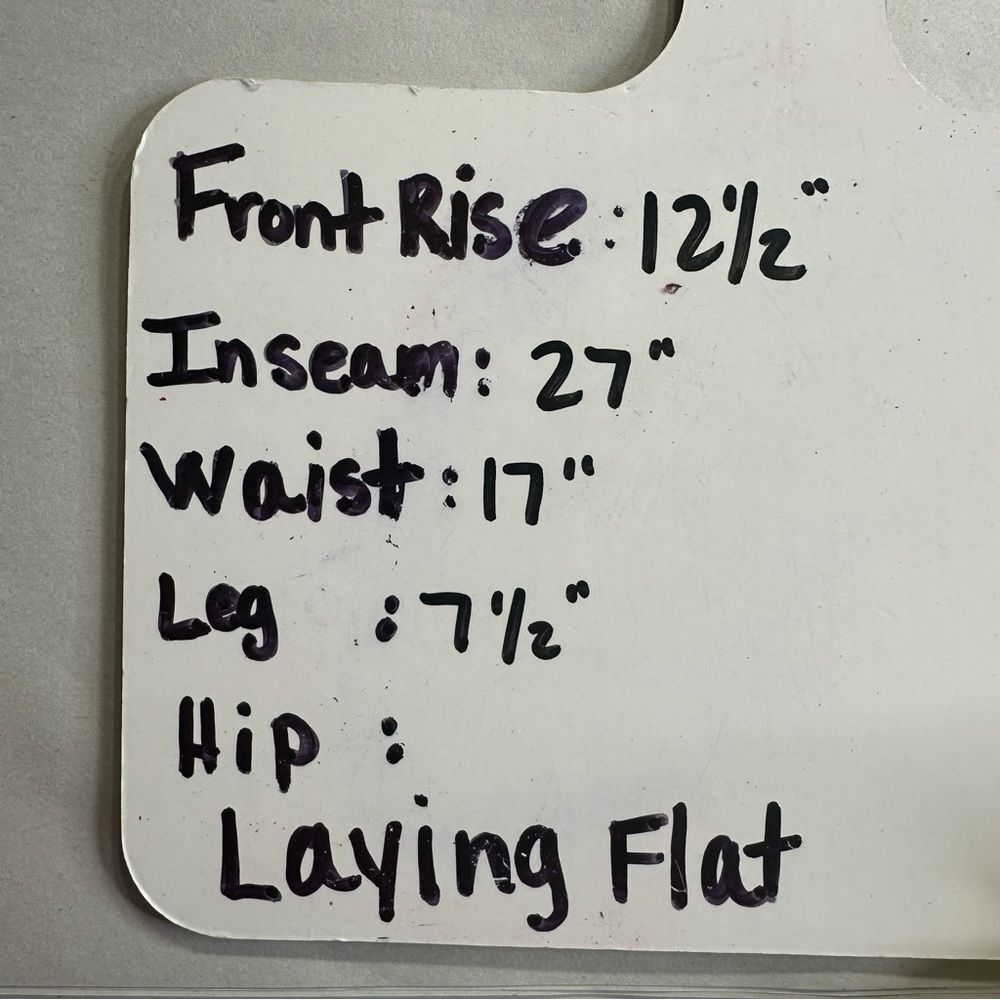 Front Rise: 12 1/2"
Inseam: 27"
Waist: 17"
Leg : 7 1/2"
Hip :
Laying Flat